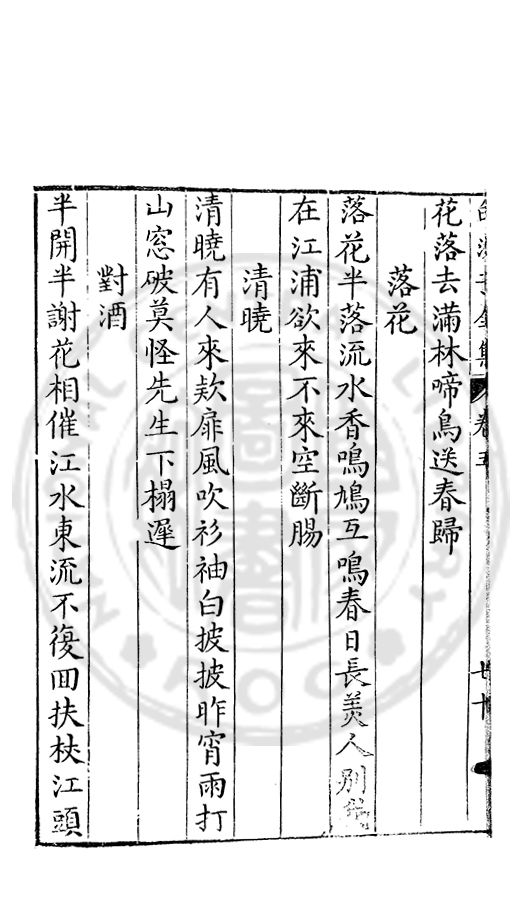 花落去滿林啼鳥送春歸
落花
落花半落流水香鳴鳩互鳴春日長羙人別
在江浦欲來不來空斷腸
清曉
清曉有人來欵扉風吹衫袖白披披昨宵雨打
山窓破莫怪先生下榻遲
對酒
半開半謝花相催江水東流不復囬扶杖江頭